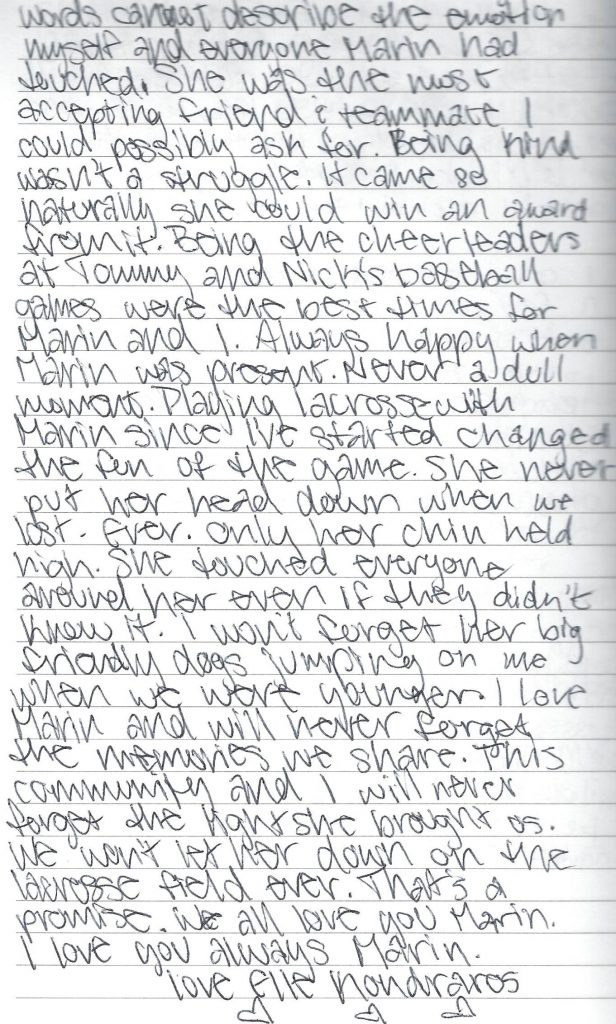 words cannot describe the emotion
myself and everyone Marin had
touched. She was the most
accepting friend & teammate I
could possibly ask for. Being kind
wasn't a struggle. It came so
naturally she could win an award
from it. Being the cheerleaders
at Tommy and Nick's baseball
games were the best times for
Marin and I. Always happy when
Marin was present. Never a dull
moment. Playing lacrosse with
Marin since I've started changed
the fun of the game. She never
put her head down when we
lost. Ever. Only her chin held
high. She touched everyone
around her even if they didn't
know it. I won't forget her big
friendly dogs jumping on me
when we were younger. I love
Marin and will never forget
the memories we share. This
community and I will never
forget the light she brought us.
We won't let her down on the
lacrosse field ever. That's a
promise. We all love you Marin.
I love you always Marin.
love Elle